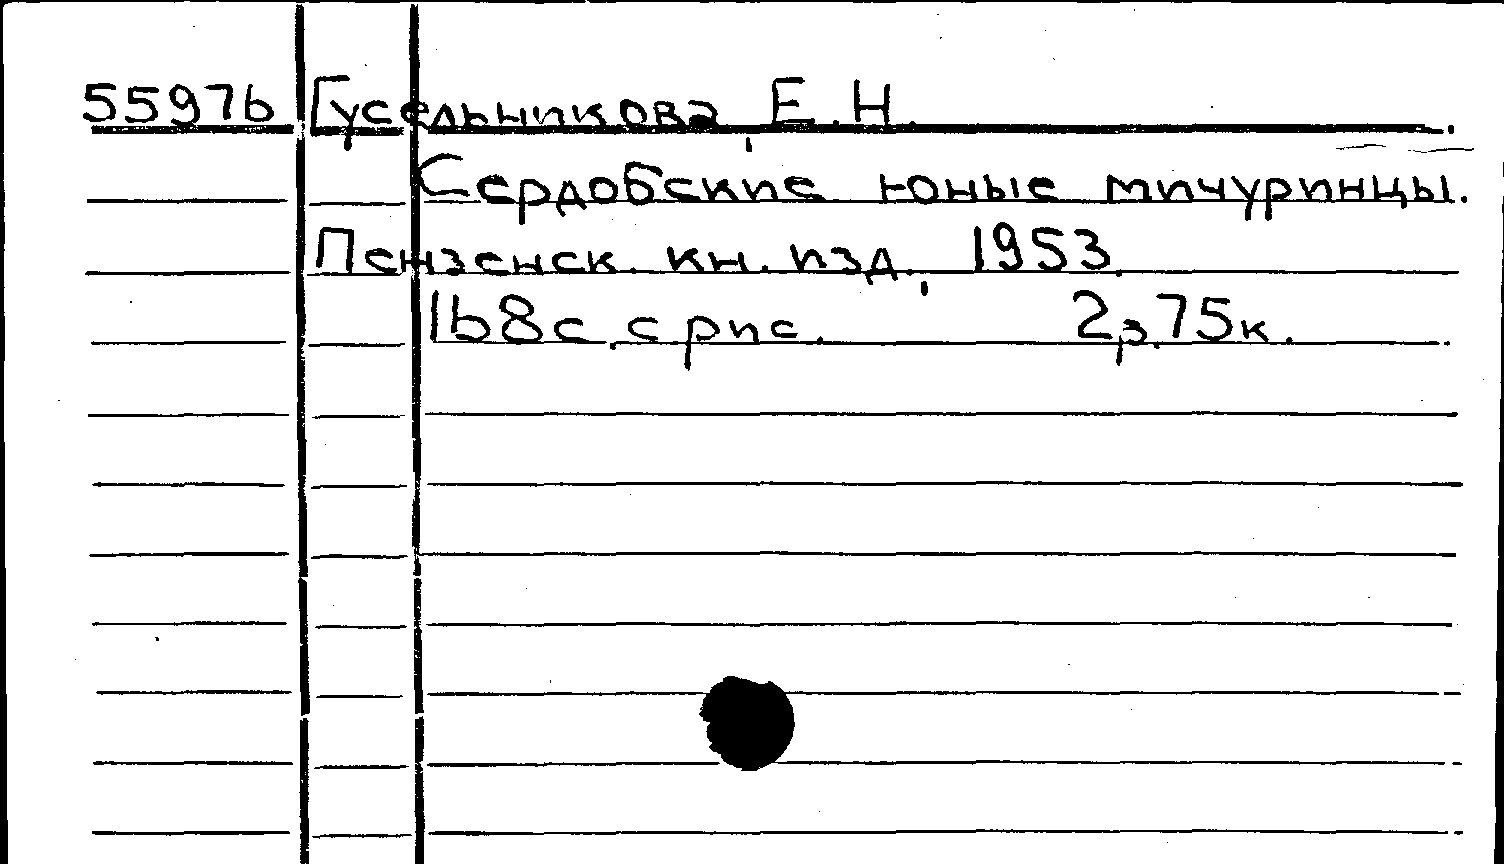 55976 Гусельникова, Е.Н.
Сердобские юные мичуринцы.
Пензенск. кн. изд., 1953.
168с. с рис. 2р.75к.